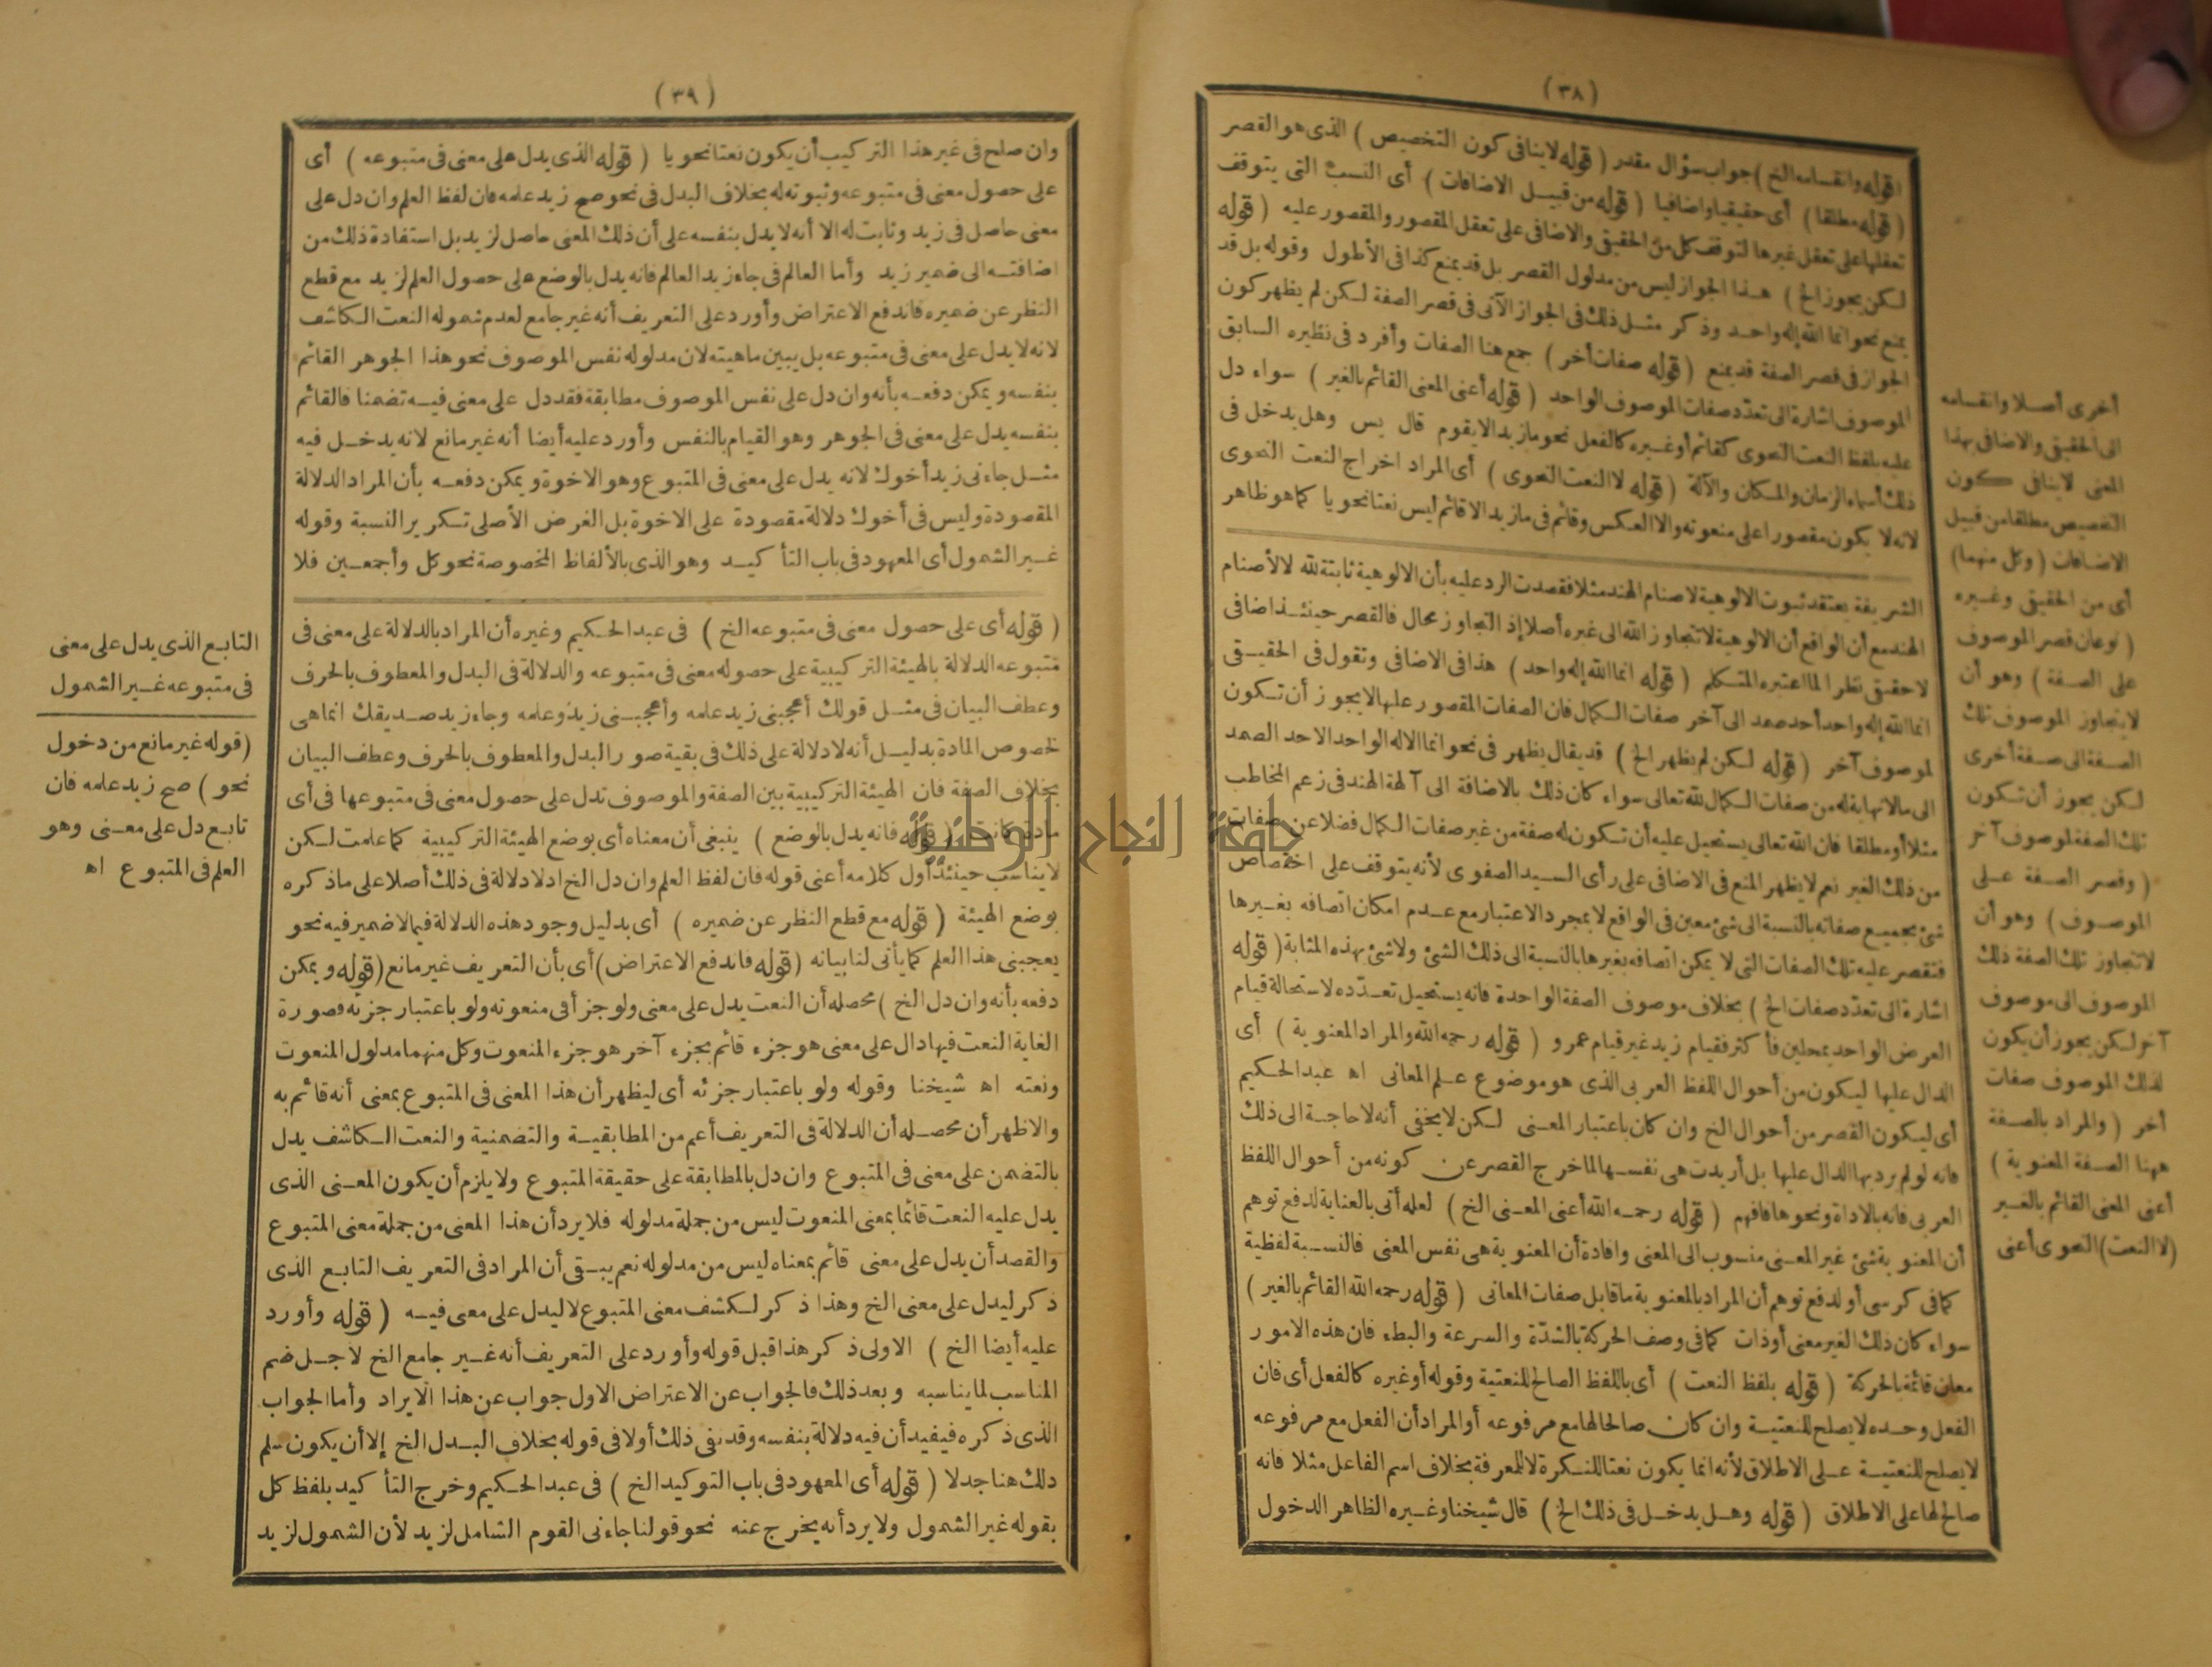 (٣٨)
(قوله وانقسامه الخ) جواب سؤال مقدر (قوله لاينافى كون التخصيص) الذى هو القصر
(قوله مطلقا) أى حقيقيا واضافيا (قوله من قبيل الاضافات) أى النسب التى يتوقف
تعقلها على تعقل غيرها لتوقف كل من الحقيقى والاضافى على تعقل المقصور والمقصور عليه (قوله
لكن يجوز الخ) هذا الجواز ليس من مدلول القصر بل قد يمنع كذا فى الأطول وقوله بل قد
يمنع نحو انما الله إله واحد وذكر مثل ذلك فى الجواز الآتى فى قصر الصفة لكن لم يظهر كون
الجواز فى قصر الصفة قد يمنع (قوله صفات أخر) جمع هنا الصفات وأفرد فى نظيره السابق
الموصوف اشارة الى تعدد صفات الموصوف الواحد (قوله أعنى المعنى القائم بالغير) سواء دل
عليه بلفظ النعت النحوى كقائم أو غيره كالفعل نحو ما زيد الا يقوم قال يس وهل يدخل فى
ذلك أسماء الزمان والمكان والآلة (قوله لا النعت النحوى) أى المراد اخراج النعت النحوى
لانه لا يكون مقصورا على منعوته والا العكس وقائم فى ما زيد الا قائم ليس نعتا نحويا كما هو ظاهر
الشريفة يعتقد ثبوت الالوهية لاصنام الهند مثلا فقصدت الرد عليه بأن الالوهية ثابتة لله لا لأصنام
الهند مع أن الواقع أن الالوهية لا تتجاوز الله الى غيره أصلا إذ التجاوز محال فالقصر حينئذ اضافى
لا حقيقى نظر الما اعتبره المتكلم (قوله انما الله إله واحد) هذا فى الاضافى وتقول فى الحقيقى
انما الله إله واحد أحد صمد الى آخر صفات الكمال فان الصفات المقصور عليها لا يجوز أن تكون
لموصوف آخر (قوله لكن لم يظهر الخ) قد يقال يظهر فى نحو انما الاله الواحد الاحد الصمد
الى مالانهاية له من صفات الكمال لله تعالى سواء كان ذلك بالاضافة الى آلهة الهند فى زعم المخاطب
مثلا أو مطلقا فان الله تعالى يستحيل عليه أن تكون له صفة من غير صفات الكمال فضلا عن صفات
من ذلك الغير نعم لا يظهر المنع فى الاضافى على رأى السيد الصفوى لأنه يتوقف على اختصاص
شئ بجميع صفاته بالنسبة الى شئ معين فى الواقع لا بمجرد الاعتبار مع عدم امكان اتصافه بغيرها
فتقصر عليه تلك الصفات التى لا يمكن اتصافه بغيرها بالنسبة الى ذلك الشئ ولا شئ بهذه المثابة (قوله
اشارة الى تعدد صفات الخ) بخلاف موصوف الصفة الواحدة فانه يستحيل تعدّده لاستحالة قيام
العرض الواحد بمحلين فأكثر فقيام زيد غير قيام عمرو (قوله رحمه الله والمراد المعنوية) أى
الدال عليها ليكون من أحوال اللفظ العربى الذى هو موضوع علم المعانى اه عبد الحكيم
أى ليكون القصر من أحوال الخ وان كان باعتبار المعنى لكن لا يخفى أنه لا حاجة الى ذلك
فانه لو لم يرد بها الدال عليها بل أريدت هى نفسها لما خرج القصر عن كونه من أحوال اللفظ
العربى فانه بالاداة ونحوها فافهم (قوله رحمه الله أعنى المعنى الخ) لعله أتى بالعناية لدفع توهم
أن المعنوية شئ غير المعنى منسوب الى المعنى وافادة أن المعنوية هى نفس المعنى فالنسبة لفظية
كما فى كرسى أو لدفع توهم أن المراد بالمعنوية ما قابل صفات المعانى (قوله رحمه الله القائم بالغير)
سواء كان ذلك الغير معنى أو ذات كما فى وصف الحركة بالشدّة والسرعة والبطء فان هذه الامور
معان قائمة بالحركة (قوله بلفظ النعت) أى باللفظ الصالح للنعتية وقوله أو غيره كالفعل أى فان
الفعل وحده لا يصلح للنعتية وان كان صالحا لها مع مرفوعه أو المراد أن الفعل مع مرفوعه
لا يصلح للنعتية على الاطلاق لأنه انما يكون نعتا للنكرة لا للمعرفة بخلاف اسم الفاعل مثلا فانه
صالح لها على الاطلاق (قوله وهل يدخل فى ذلك الخ) قال شيخنا وغيره الظاهر الدخول
أخرى أصلا وانقسامه
الى الحقيقى والاضافى بهذا
المعنى لاينافى كون
التخصيص مطلقا من قبيل
الاضافات (وكل منهما)
أى من الحقيقى وغيره
(نوعان قصر الموصوف
على الصفة) وهو أن
لا يتجاوز الموصوف تلك
الصفة الى صفة أخرى
لكن يجوز أن تكون
تلك الصفة لموصوف آخر
(وقصر الصفة على
الموصوف) وهو أن
لا تتجاوز تلك الصفة ذلك
الموصوف الى موصوف
آخر لكن يجوز أن يكون
لذلك الموصوف صفات
أخر (والمراد بالصفة
ههنا الصفة المعنوية)
أعنى المعنى القائم بالغير
(لا النعت) النحوى أعنى
(٣٩)
وان صلح فى غير هذا التركيب أن يكون نعتا نحويا (قوله الذى يدل على معنى فى متبوعه) أى
على حصول معنى فى متبوعه وثبوته له بخلاف البدل فى نحو صح زيد علمه فان لفظ العلم وان دل على
معنى حاصل فى زيد وثابت له الا أنه لا يدل بنفسه على أن ذلك المعنى حاصل لزيد بل استفادة ذلك من
اضافته الى ضمير زيد وأما العالم فى جاء زيد العالم فانه يدل بالوضع على حصول العلم لزيد مع قطع
النظر عن ضميره فاندفع الاعتراض وأورد على التعريف أنه غير جامع لعدم شموله النعت الكاشف
لانه لا يدل على معنى فى متبوعه بل يبين ماهيته لان مدلوله نفس الموصوف نحو هذا الجوهر القائم
بنفسه ويمكن دفعه بأنه وان دل على نفس الموصوف مطابقة فقد دل على معنى فيه تضمنا فالقائم
بنفسه يدل على معنى فى الجوهر وهو القيام بالنفس وأورد عليه أيضا أنه غير مانع لانه يدخل فيه
مثل جاءنى زيد أخوك لانه يدل على معنى فى المتبوع وهو الاخوة ويمكن دفعه بأن المراد الدلالة
المقصودة وليس فى أخوك دلالة مقصودة على الاخوة بل الغرض الأصلى تكرير النسبة وقوله
غير الشمول أى المعهود فى باب التأكيد وهو الذى بالألفاظ المخصوصة نحو كل وأجمعين فلا
(قوله أى على حصول معنى فى متبوعه الخ) فى عبد الحكيم وغيره أن المراد بالدلالة على معنى فى
متبوعه الدلالة بالهيئة التركيبية على حصوله معنى فى متبوعه والدلالة فى البدل والمعطوف بالحرف
وعطف البيان فى مثل قولك أعجبنى زيد علمه وأعجبنى زيد وعلمه وجاء زيد صديقك انما هى
لخصوص المادة بدليل أنه لا دلالة على ذلك فى بقية صور البدل والمعطوف بالحرف وعطف البيان
بخلاف الصفة فان الهيئة التركيبية بين الصفة والموصوف تدل على حصول معنى فى متبوعها فى أى
مادة كانت (قوله فانه يدل بالوضع) ينبغى أن معناه أى بوضع الهيئة التركيبية كما علمت لكن
لا يناسب حينئذ أول كلامه أعنى قوله فان لفظ العلم وان دل الخ اذ لا دلالة فى ذلك أصلا على ما ذكره
بوضع الهيئة (قوله مع قطع النظر عن ضميره) أى بدليل وجود هذه الدلالة فيما لا ضمير فيه نحو
يعجبنى هذا العلم كما يأتى لنا بيانه (قوله فاندفع الاعتراض) أى بأن التعريف غير مانع (قوله ويمكن
دفعه بأنه وان دل الخ) محصله أن النعت يدل على معنى ولو جزأ فى منعوته ولو باعتبار جزئه فصورة
الغاية النعت فيها دال على معنى هو جزء قائم بجزء آخر هو جزء المنعوت وكل منهما مدلول المنعوت
ونعته اه شيخنا وقوله ولو باعتبار جزئه أى ليظهر أن هذا المعنى فى المتبوع بمعنى أنه قائم به
والاظهر أن محصله أن الدلالة فى التعريف أعم من المطابقية والتضمنية والنعت الكاشف يدل
بالتضمن على معنى فى المتبوع وان دل بالمطابقة على حقيقة المتبوع ولا يلزم أن يكون المعنى الذى
يدل عليه النعت قائما بمعنى المنعوت ليس من جملة مدلوله فلا يرد أن هذا المعنى من جملة معنى المتبوع
والقصد أن يدل على معنى قائم بمعناه ليس من مدلوله نعم يبقى أن المراد فى التعريف التابع الذى
ذكر ليدل على معنى الخ وهذا ذكر لكشف معنى المتبوع لا ليدل على معنى فيه (قوله وأورد
عليه أيضا الخ) الاولى ذكر هذا قبل قوله وأورد على التعريف أنه غير جامع الخ لاجل ضم
المناسب لما يناسبه وبعد ذلك فالجواب عن الاعتراض الاول جواب عن هذا الايراد وأما الجواب
الذى ذكره فيفيد أن فيه دلالة بنفسه وقد نفى ذلك أولا فى قوله بخلاف البدل الخ إلا أن يكون سلم
ذلك هنا جدلا (قوله أى المعهود فى باب التوكيد الخ) فى عبد الحكيم وخرج التأكيد بلفظ كل
بقوله غير الشمول ولا يرد أنه يخرج عنه نحو قولنا جاءنى القوم الشامل لزيد لأن الشمول لزيد
التابع الذى يدل على معنى
فى متبوعه غير الشمول
(قوله غير مانع من دخول
نحو) صح زيد علمه فان
تابع دل على معنى وهو
العلم فى المتبوع اه
جامعة النجاح الوطنية